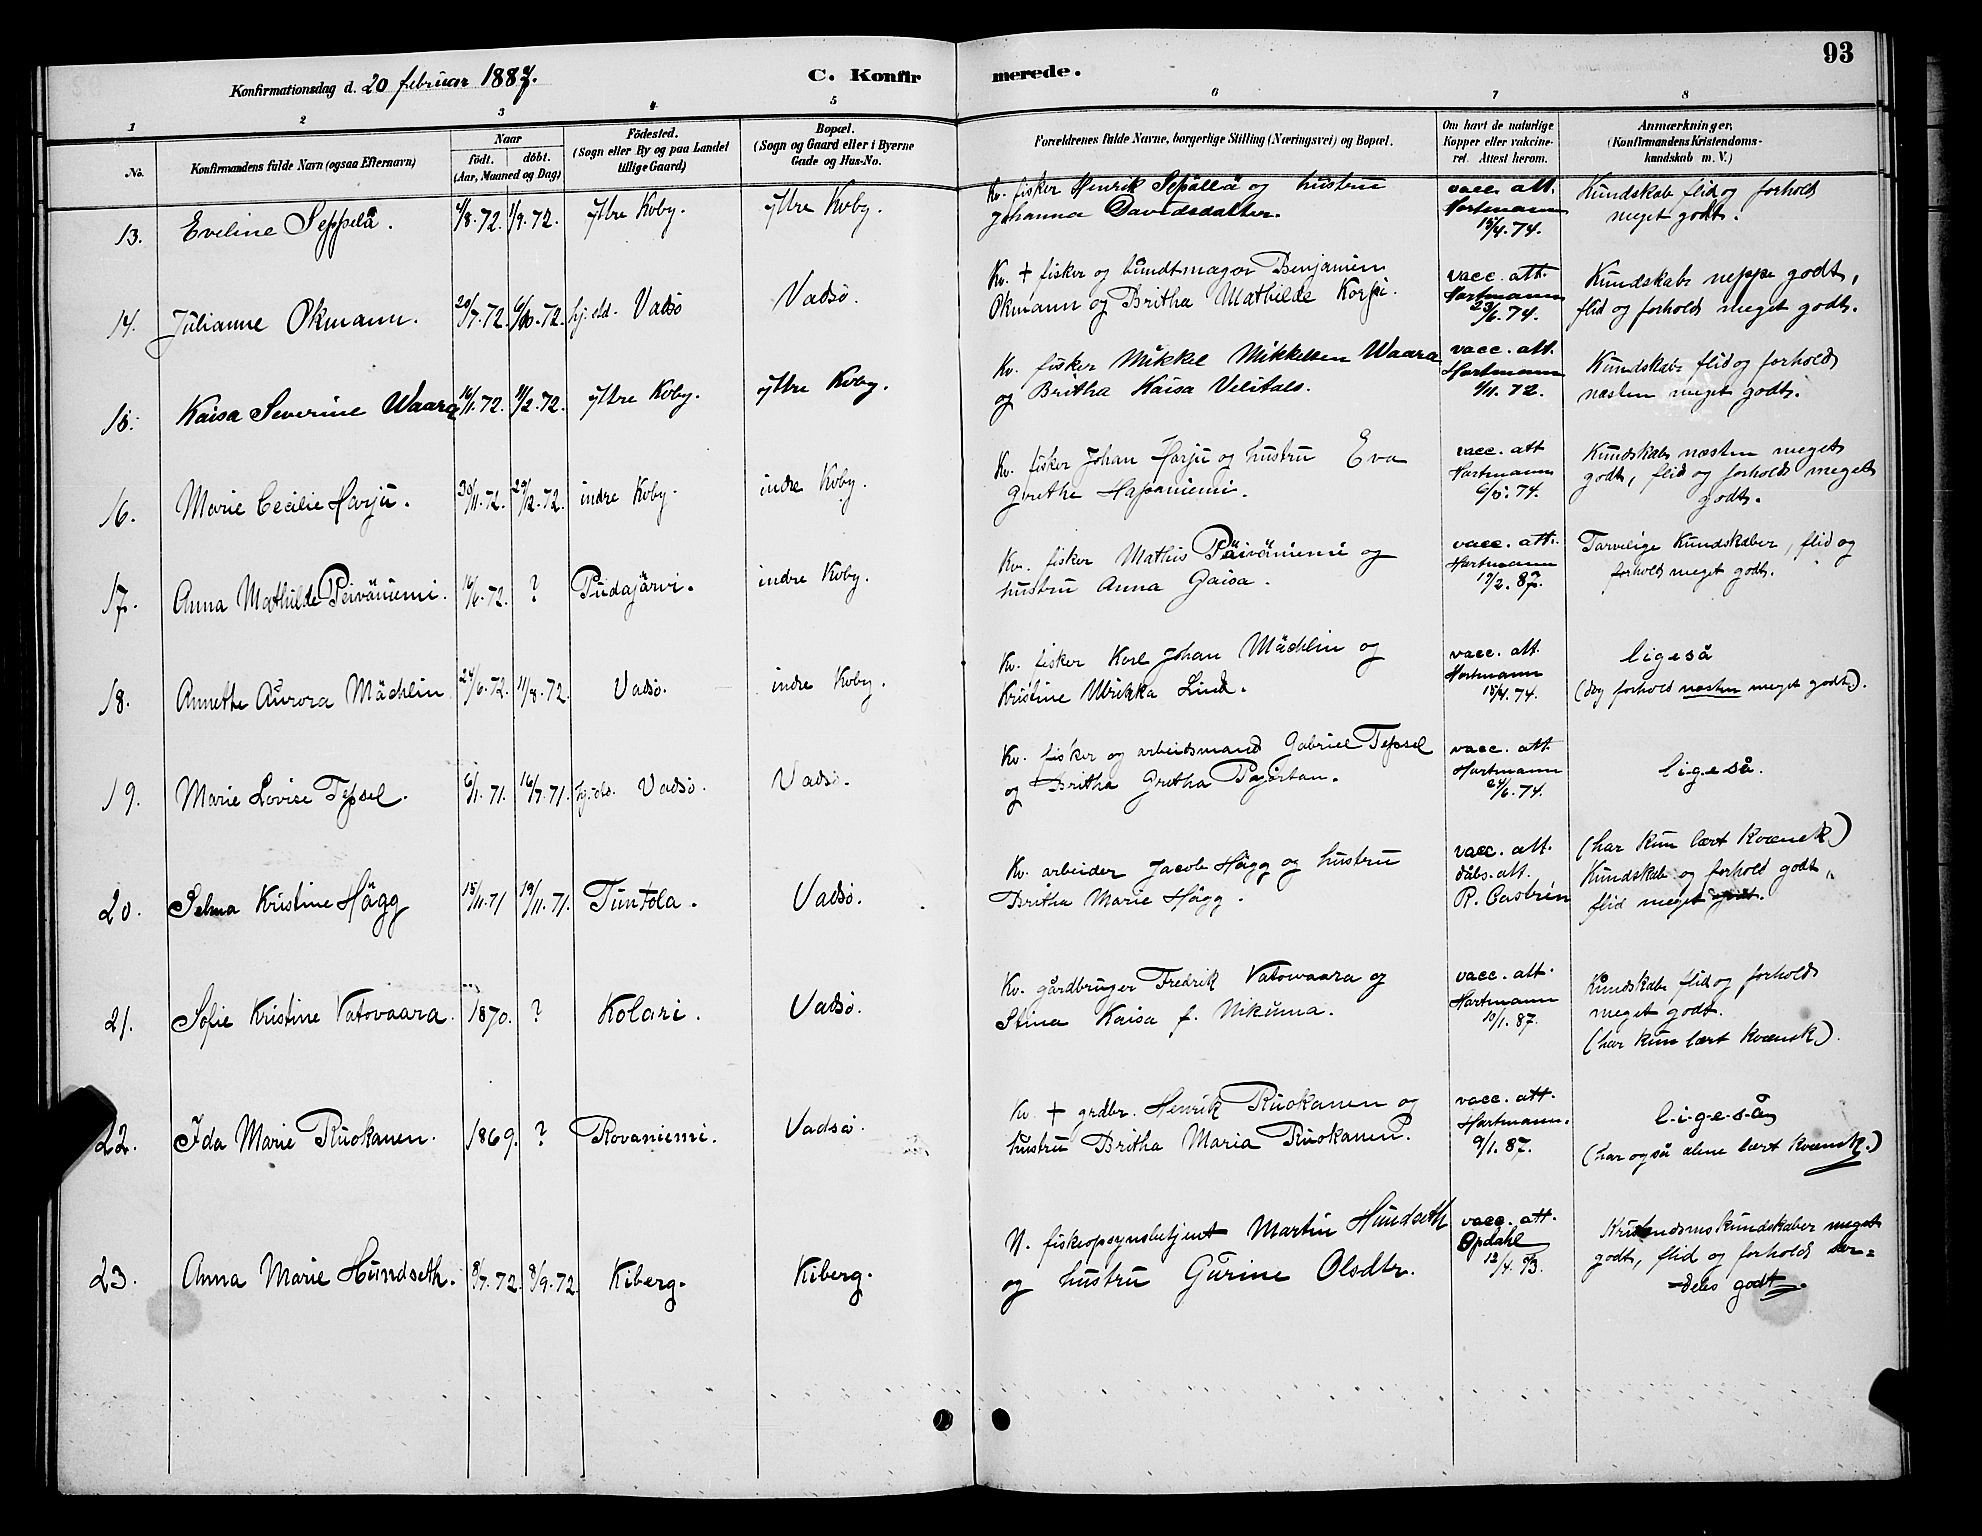 93
Konfirmationsdag d. 20 februar 1887. C. Konfirmerede.
1 2 3 4 5 6 7 8
No. Konfirmandens fulde Navn (ogsaa Efternavn) Naar födt. döbt. (Aar, Maaned og Dag) Födested. (Sogn eller By og paa Landet tillige Gaard) Bopæl. (Sogn og Gaard eller i Byerne Gade og Hus-No. Forældrenes fulde Navne, borgerlige Stilling (Næringsvei) og Bopæl. Om havt de naturlige Kopper eller vakcineret. Attest herom. Anmærkninger. (Konfirmandens Kristendomskundskab m. V.)
13. Eveline Seppelä. 4/8.72. 1/9.72. ytre Koby. ytre Koby. Kv. fisker Henrik Sepällä og hustru
Johanna Davidsdatter. vacc. att.
Hartmann
15/4.74. Kundskab flid og forhold
meget godt.
14. Julianne Okmann. 20/7.72. 6/10.72. hj. Vadsö Vadsö. Kv. + fisker og bundtmager Benjamin
Okmann og Britha Mathilde Korpi. vacc. att.
Hartmann
23/6.74. Kundskab neppe godt,
flid og forhold meget godt.
15. Kaisa Severine Waara 16/1.72. 11/2.72. ytre Koby. ytre Koby. Kv. fisker Mikkel Mikkelsen Waara
og Britha Kaisa Velitalo. vacc. att.
Hartmann
4/11.72. Kundskab flid og forhold
næsten meget godt.
16. Marie Cecilie Harju. 30/11.72. 29/12.72. indre Koby. indre Koby. Kv. fisker Johan Harju og hustru Eva
Grethe Hapaniemi. vacc. att
Hartmann
6/5.74. Kundskab næsten meget
godt, flid og forhold meget
godt.
17. Anna Mathilde Peiväniemi. 16/6.72. ? Pudajärvi. indre Koby. Kv. fisker Mathis Päiväniemi og
hustru Anna Gaisa. vacc. att.
Hartmann
19/2.87. Tarvelige Kundskaber, flid og
forhold meget godt.
18. Annette Aurora Mächlin 24/6.72. 11/8.72. Vadsö. indre Koby. Kv. fisker Karl Johan Mächlin og
Kristine Ulrikka Lind. vacc. att.
Hartmann
15/4.74. ligeså
(dog forhold næsten meget godt).
19. Marie Lovise Tepsel. 6/1.71. 16/7.71. Vadsö. Vadsö. Kv. fisker og arbeidsmand Gabriel Tepsel
og Britha Gretha vacc. att.
Hartmann
24/6.74. ligeså.
20. Selma Kristine Hägg 15/11.71 19/11.71. Vadsö. Kv. arbeider Jacob Hägg og hustru
Britha Marie Hägg. vacc. att.
dåbs. att.
R. Castrén (har kun lært kvænsk)
Kundskab og forhold godt,
flid meget godt.
21. Sofie Kristine Vatovaara. 1870. ? Kolari. Vadsö. Kv. gårdbruger Fredrik Vatowaara og
Stina Kaisa f. Nikunna. vacc. att.
Hartmann
10/1.87. Kundskab flid og forhold
meget godt.
(har kun lært kvænsk).
22. Ida Marie Ruokanen. 1869. ? Rovaniemi. Vadsö. Kv. + grdbr. Henrik Ruokanen og
hustru Britha Maria Ruokanen. vacc. att.
Hartmann.
9/1.87. ligeså
(har også alene lært kvænsk.)
23. Anna Marie Hundseth. 8/7.72. 8/9.72. Kiberg. Kiberg. N. fiskeopsynsbetjent Martin Hundseth
og hustru Gurine Olsdtr. vacc. att.
Opdahl
12/4. Kristendomskundskaber meget
godt, flid og forhold sær-
deles godt.